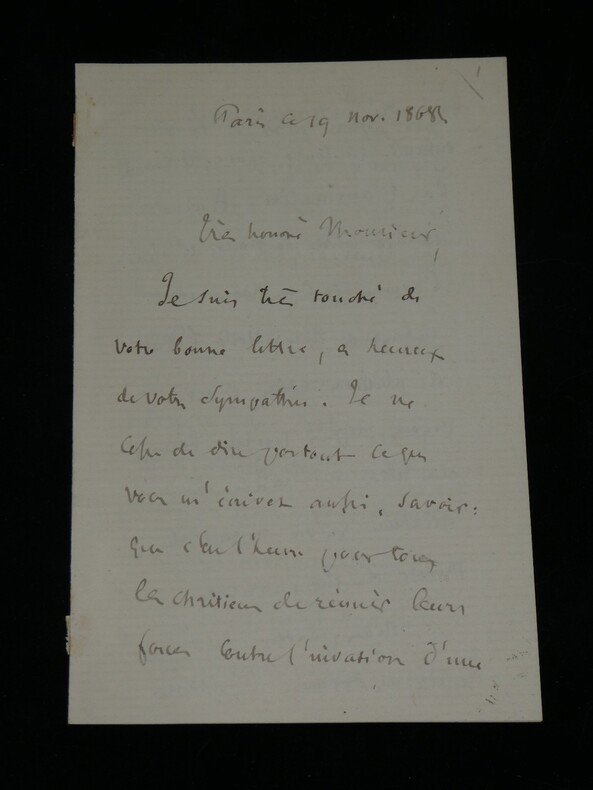 Paris ce 19 nov. 1868
Très honoré Monsieur,
Je suis très touché de
votre bonne lettre, et heureux
de votre sympathie. Je ne
cesse de dire partout ce que
vous m'écrivez aussi, savoir:
que c'est l'heure pour tous
les chrétiens de réunir leurs
forces contre l'invasion d'une